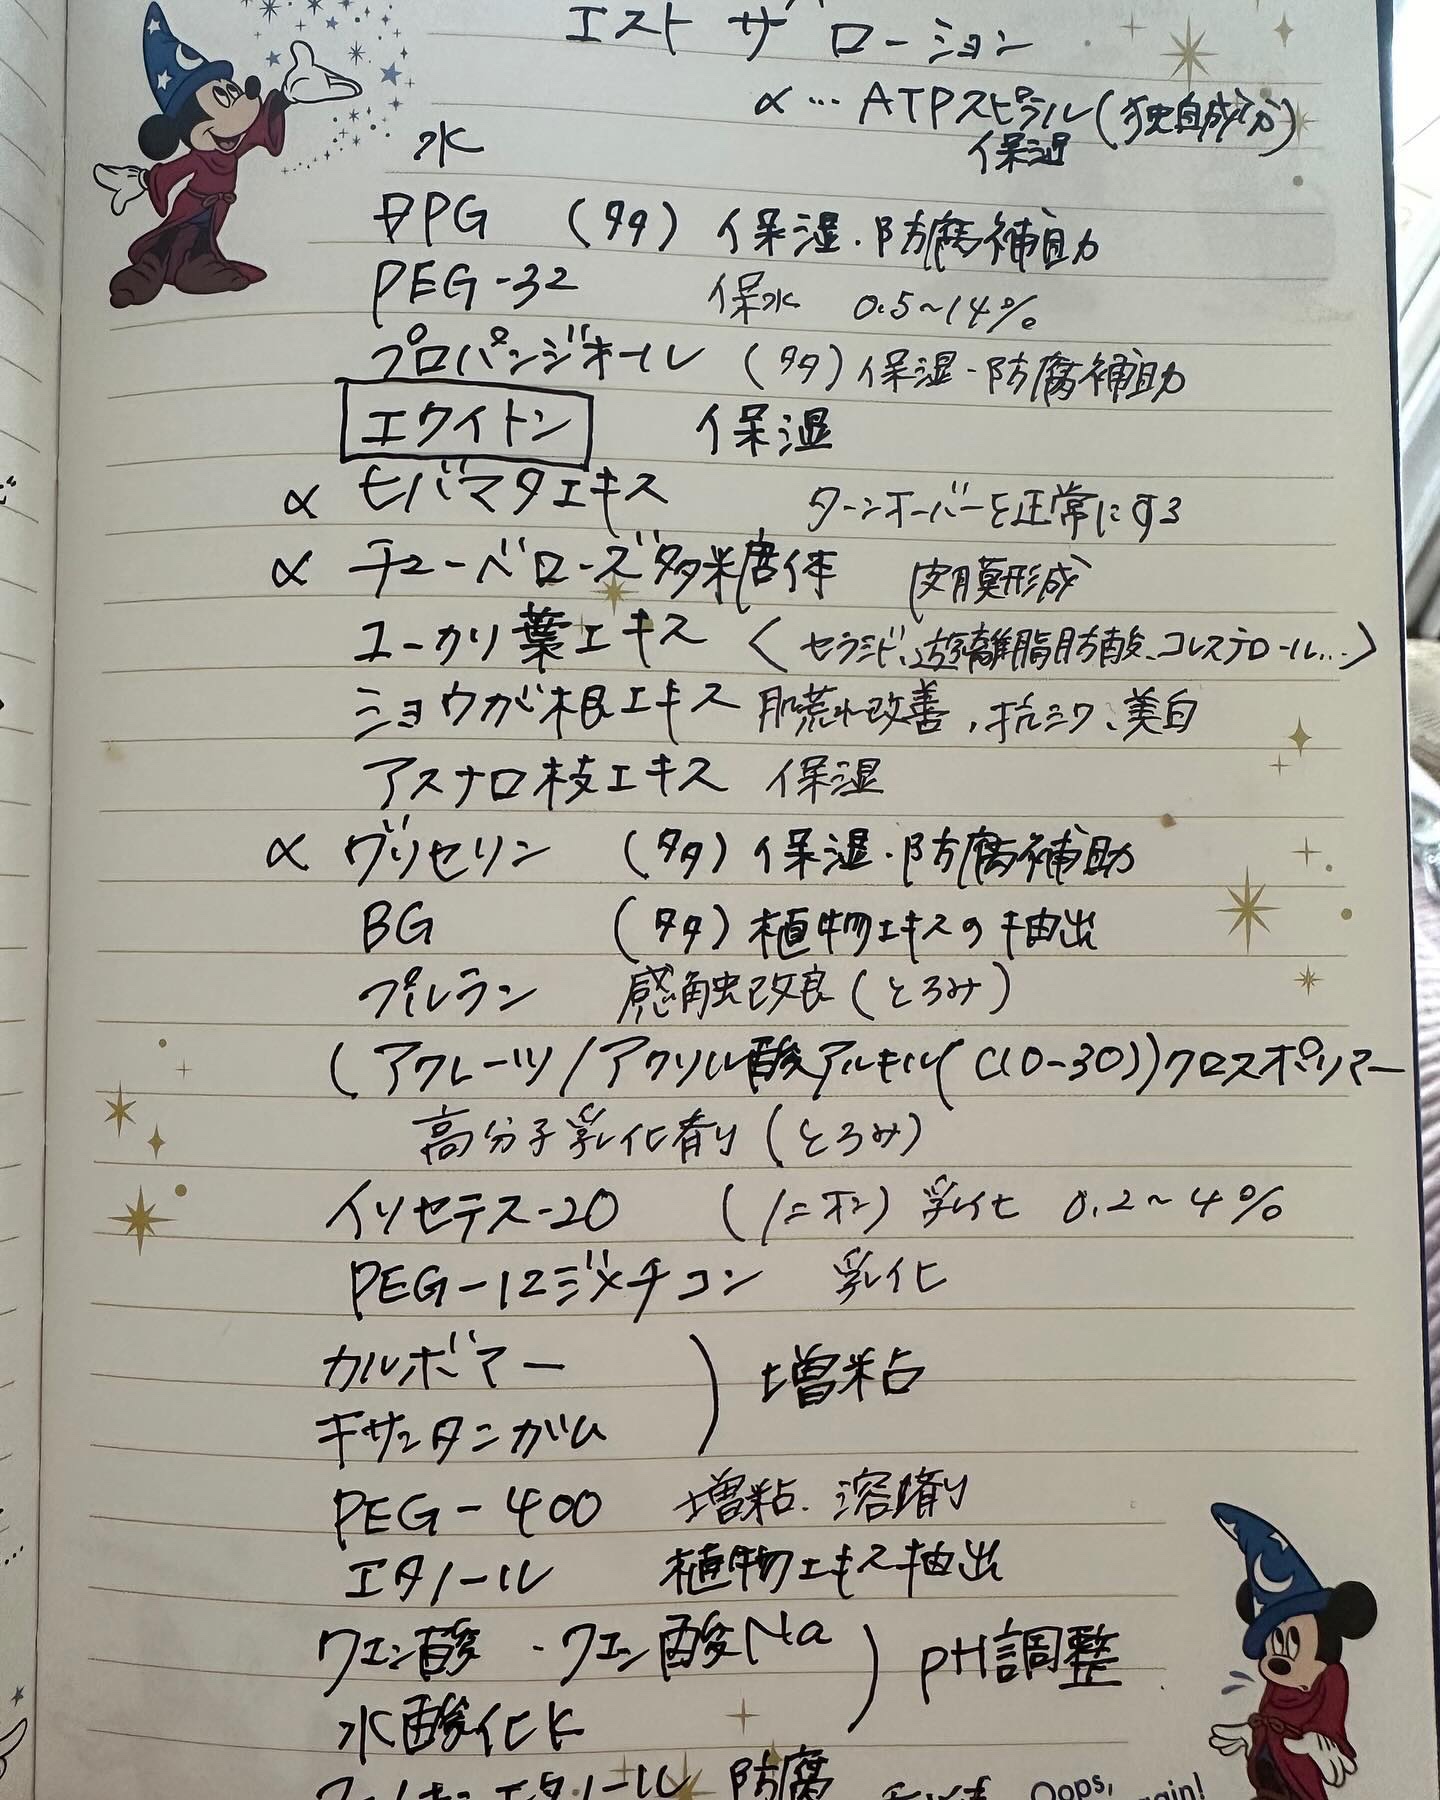 エスト ザ ローション
α … ATPスピラル(独自成分)
保湿
水
DPG (多) 保湿・防腐補助
PEG-32 保水 0.5~14%
プロパンジオール (多) 保湿・防腐補助
エクイトン 保湿
α ヒバマタエキス ターンオーバーを正常にする
α チューベローズ多糖体 皮膜形成
ユーカリ葉エキス 〈セラミド、遊離脂肪酸、コレステロール…〉
ショウガ根エキス 肌荒れ改善、抗シワ、美白
アスナロ枝エキス 保湿
α グリセリン (多) 保湿・防腐補助
BG (多) 植物エキスの抽出
プルラン 感触改良(とろみ)
(アクレーツ/アクリル酸アルキル(C10-30))クロスポリマー
高分子乳化剤(とろみ)
イソセテス-20 (ノニオン) 乳化 0.2~4%
PEG-12ジメチコン 乳化
カルボマー
キサンタンガム ) 増粘
PEG-400 増粘.溶剤
エタノール 植物エキス抽出
クエン酸・クエン酸Na
水酸化K ) pH調整
エタノール 防腐
Oops,